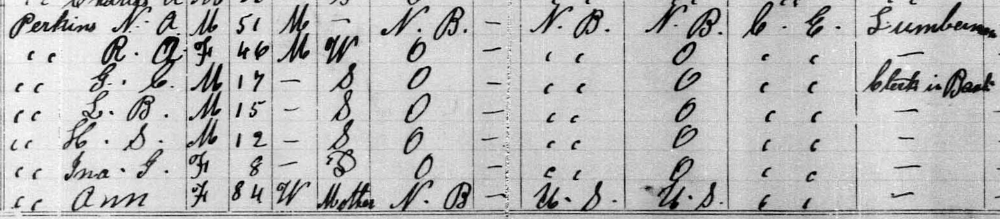 Perkins N. A. M 51 M — N. B. — N. B. N. B. C. E. Lumberman
" R. A. F 46 M W O — " O " " —
" G. C. M 17 — S O " O " " Clerk in Bank
" L. B. M 15 — S O — " O " " —
" H. S. M 12 — S O — " O " " —
" Ina. G. F 8 — D O — " O " " —
" Ann F 84 W Mother N. B — U. S. U. S. " " —